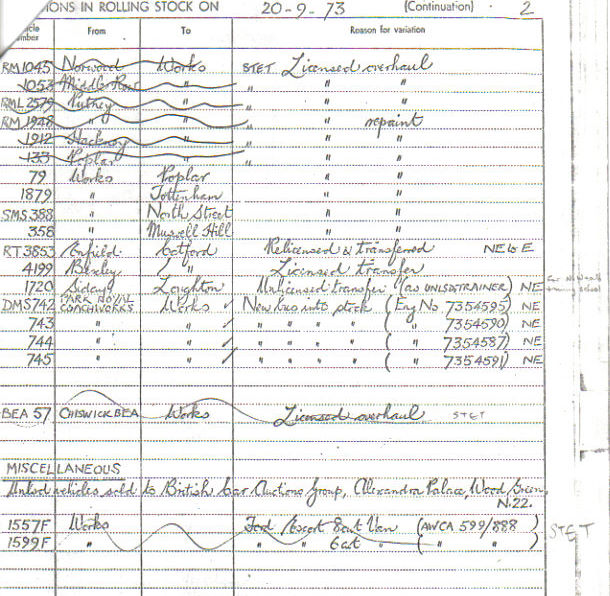 IONS IN ROLLING STOCK ON 20-9-73 (Continuation) 2
icle
mber From To Reason for variation
RM1045 Norwood Works STET Licensed overhaul
1053 Middle Row " " " "
RML2579 Putney " " " "
RM1948 " " " " repaint
1912 Hackney " " " "
133 Poplar " " " "
79 Works Poplar " "
1879 " Tottenham " "
SMS388 " North Street " "
358 " Muswell Hill " "
RT3853 Enfield Catford Relicensed & transferred NE to E
4199 Bexley " Licensed transfer
1720 Sidcup Loughton Unlicensed transfer (as UNLSD TRAINER) NE
DMS742 PARK ROYAL COACHWORKS Works ✓ New bus into stock (Eng No 7354595) NE
743 " " ✓ " " " " ( " 7354590) NE
744 " " ✓ " " " " ( " 7354587) NE
745 " " ✓ " " " " ( " 7354591) NE
BEA 57 CHISWICK BEA Works Licensed overhaul STET
MISCELLANEOUS
Unlsd vehicles sold to British Car Auctions Group, Alexandra Palace, Wood Green,
N.22.
1557F Works Ford Escort 8cwt Van (AWCA 599/888 ) STET
1599F " " " 6cwt " ( " " )